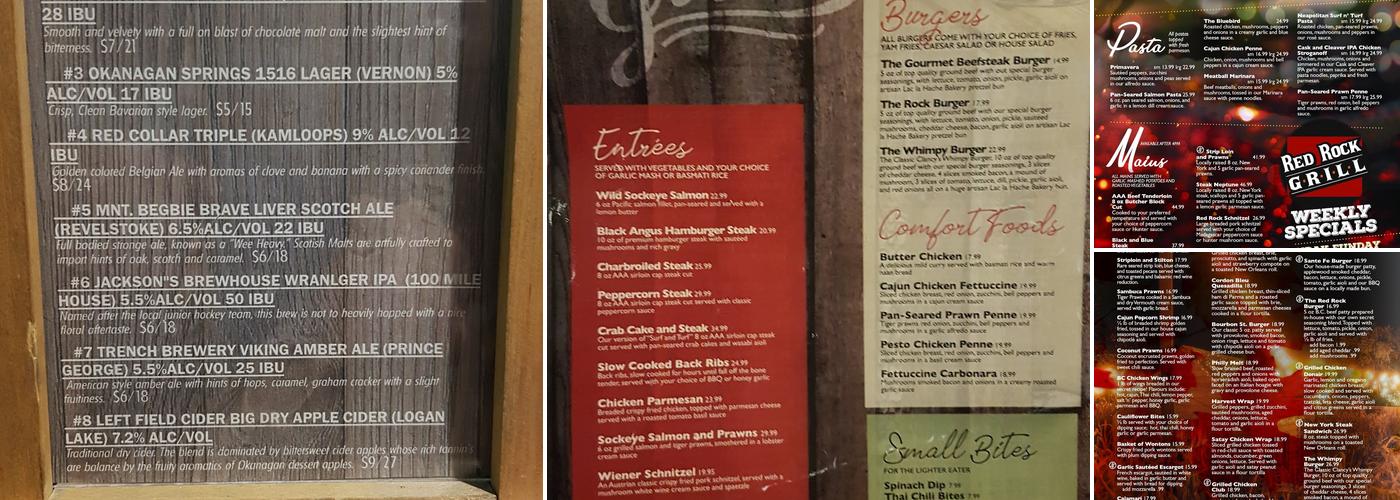 28 IBU
Smooth and velvety with a full on blast of chocolate malt and the slightest hint of
bitterness. $7/21
#3 OKANAGAN SPRINGS 1516 LAGER (VERNON) 5%
ALC/VOL 17 IBU
Crisp, Clean Bavarian style lager. $5/15
#4 RED COLLAR TRIPLE (KAMLOOPS) 9% ALC/VOL 12
IBU
Golden colored Belgian Ale with aromas of clove and banana with a spicy coriander finish.
$8/24
#5 MNT. BEGBIE BRAVE LIVER SCOTCH ALE
(REVELSTOKE) 6.5%ALC/VOL 22 IBU
Full bodied stronge ale, known as a "Wee Heavy." Scotish Malts are artfully crafted to
import hints of oak, scotch and caramel. $6/18
#6 JACKSON"S BREWHOUSE WRANLGER IPA (100 MILE
HOUSE) 5.5%ALC/VOL 50 IBU
Named after the local junior hockey team, this brew is not to heavily hopped with a nice
floral aftertaste. $6/18
#7 TRENCH BREWERY VIKING AMBER ALE (PRINCE
GEORGE) 5.5%ALC/VOL 25 IBU
American style amber ale with hints of hops, caramel, graham cracker with a slight
fruitiness. $6/18
#8 LEFT FIELD CIDER BIG DRY APPLE CIDER (LOGAN
LAKE) 7.2% ALC/VOL
Traditional dry cider. The blend is dominated by bittersweet cider apples whose rich tannins
are balance by the fruity aromatics of Okanagan dessert apples. $9/27
Entrées
SERVED WITH VEGETABLES AND YOUR CHOICE
OF GARLIC MASH OR BASMATI RICE
Wild Sockeye Salmon 22.99
6 oz Pacific salmon fillet, pan-seared and served with a
lemon butter
Black Angus Hamburger Steak 20.99
10 oz of premium hamburger steak with sauteed
mushrooms and rich gravy
Charbroiled Steak 25.99
8 oz AAA sirloin cap steak cut
Peppercorn Steak 29.99
8 oz AAA sirloin cap steak cut served with classic
peppercorn sauce
Crab Cake and Steak 34.99
Our version of "Surf and Turf" 8 oz AAA sirloin cap steak
cut served with pan-seared crab cakes and wasabi aioli
Slow Cooked Back Ribs 24.99
Back ribs, slow cooked for hours until fall off the bone
tender, served with your choice of BBQ or honey garlic
Chicken Parmesan 23.99
Breaded crispy fried chicken, topped with parmesan cheese
served with a roasted tomato basil sauce
Sockeye Salmon and Prawns 29.99
6 oz grilled salmon and tiger prawns, smothered in a lobster
cream sauce
Wiener Schnitzel 19.95
An Austrian classic crispy fried pork schnitzel, served with a
mushroom white wine cream sauce and spaetzle
Burgers
ALL BURGERS COME WITH YOUR CHOICE OF FRIES,
YAM FRIES, CAESAR SALAD OR HOUSE SALAD
The Gourmet Beefsteak Burger 14.99
5 oz of top quality ground beef with our special burger
seasonings, with lettuce, tomato, onion, pickle, garlic aioli on
artisan Lac la Hache Bakery pretzel bun
The Rock Burger 17.99
5 oz of top quality ground beef with our special burger
seasonings, with lettuce, tomato, onion, pickle, sauteed
mushrooms, cheddar cheese, bacon, garlic aioli on artisan Lac
la Hache Bakery pretzel bun
The Whimpy Burger 22.99
The Classic Clancy's Whimpy Burger, 10 oz of top quality
ground beef with our special burger seasonings, 3 slices
of cheddar cheese, 4 slices smoked bacon, a mound of
mushrooms, 3 slices of tomato, lettuce, dill pickle, garlic aioli,
and red onions all on a huge artisan Lac la Hache Bakery bun.
Comfort Foods
Butter Chicken 17.99
A delicious mild curry served with basmati rice and warm
naan bread
Cajun Chicken Fettuccine 19.99
Sliced chicken breast, red onion, zucchini, bell peppers and
mushrooms in a cajun cream sauce
Pan-Seared Prawn Penne 19.99
Tiger prawns red onion, zucchini, bell peppers and
mushrooms in a garlic alfredo sauce
Pesto Chicken Penne 19.99
Sliced chicken breast, red onion, zucchini, bell peppers and
mushrooms in a basil cream sauce
Fettuccine Carbonara 18.99
Mushrooms smoked bacon and onions in a creamy roasted
garlic sauce
Small Bites
FOR THE LIGHTER EATER
Spinach Dip 7.99
Thai Chili Bites 7.99
Pasta
All pastas
topped
with fresh
parmesan.
Primavera sm 13.99 lrg 22.99
Sautéed peppers, zucchini
mushrooms, onions and peas served
in our alfredo sauce.
Pan-Seared Salmon Pasta 25.99
6 oz. pan seared salmon, onions, and
garlic in a lemon dill cream sauce.
The Bluebird 24.99
Roasted chicken, mushrooms, peppers
and onions in a creamy garlic and blue
cheese sauce.
Cajun Chicken Penne
sm 16.99 lrg 24.99
Chicken, onion, mushrooms and bell
peppers in a cajun cream sauce.
Meatball Marinara
sm 15.99 lrg 24.99
Beef meatballs, onions and
mushrooms, tossed in our Marinara
sauce with penne noodles.
Neapolitan Surf n' Turf
Pasta sm 15.99 lrg 24.99
Roasted chicken, pan-seared prawns,
onions, peppers, and mushrooms in
our rosé sauce.
Cask and Cleaver IPA Chicken
Stroganoff sm 16.99 lrg 24.99
Chicken, mushrooms, onions and
simmered in our Cask and Cleaver
IPA garlic cream sauce. Served with
pasta noodles, paprika and fresh
parmesan.
Pan-Seared Prawn Penne
sm 17.99 lrg 25.99
Tiger prawns, red onion, bell peppers
and mushrooms in garlic
alfredo sauce.
Mains
AVAILABLE AFTER 4PM
ALL MAINS SERVED WITH
GARLIC MASHED POTATOES AND
ROASTED VEGETABLES
AAA Beef Tenderloin
8 oz Butcher Block
Cut 44.99
Cooked to your preferred
temperature and served with
your choice of peppercorn
sauce or Hunter sauce.
Black and Blue
Steak 37.99
Strip Loin
and Prawns 41.99
Locally raised 8 oz. New
York and 5 garlic pan-seared
prawns.
Steak Neptune 46.99
Locally raised 8 oz. New York
steak, scallops and 5 garlic pan-
seared prawns all topped with
a lemon garlic parmesan sauce.
Red Rock Schnitzel 26.99
Large breaded pork schnitzel
served with your choice of
Madagascar peppercorn sauce
or hunter mushroom sauce.
RED ROCK
GRILL
WEEKLY
SPECIALS
Striploin and Stilton 17.99
Rare seared strip loin, blue cheese,
and toasted pecans served with
citrus greens and balsamic red wine
reduction.
Sambuca Prawns 16.99
Tiger Prawns cooked in a Sambuca
and dry Vermouth cream sauce,
served with garlic bread.
Cajun Popcorn Shrimp 16.99
½ lb of breaded shrimp golden
fried, tossed in our house cajun
seasoning and served with
chipotle aioli.
Coconut Prawns 16.99
Coconut encrusted prawns, golden
fried to perfection. Served with
sweet chili sauce.
BC Chicken Wings 17.99
1 lb of wings breaded in our
secret recipe! Flavours include:
hot, cajun, Thai chili, lemon pepper,
salt 'n' pepper, honey garlic, garlic
parmesan and BBQ.
Cauliflower Bites 15.99
½ lb served with your choice of
dipping sauce: hot, thai chili, honey
garlic or garlic parmesan.
Basket of Wontons 15.99
Crispy fried pork wontons served
with plum dipping sauce.
Garlic Sautéed Escargot 15.99
French escargot, mushrooms, white
wine, baked in garlic butter and
served with bread for dipping
add mozzarella .99
Calamari
prosciutto, and spinach with garlic
aioli and strawberry compote on
a toasted New Orleans roll.
Cordon Bleu
Quesadilla 18.99
Grilled chicken breast, thin-sliced
ham di Parma and a roasted
garlic sauce topped with brie,
mozzarella and parmesan cheeses
cooked in a flour tortilla.
Bourbon St. Burger 18.99
Our classic 5 oz. patty served
with provolone, smoked bacon,
onion rings, lettuce and tomato
with chipotle aioli on a
grilled cheese bun.
Philly Melt 18.99
Slow braised beef, roasted
red peppers and onions with
horseradish aioli, baked open
faced on an Italian hoagie with
gravy and provolone cheese.
Harvest Wrap 19.99
Grilled peppers, grilled zucchini,
sautéed mushrooms, aged
cheddar, onions, lettuce, and
tomato and garlic aioli in a
flour tortilla.
Satay Chicken Wrap 18.99
Sliced grilled chicken tossed
in red-chili sauce with toasted
almonds, cucumber, green
onions, lettuce. Served with
garlic aioli and satay peanut
sauce in a flour tortilla
Grilled Chicken
Club 18.99
Sante Fe Burger 18.99
Our house-made burger patty,
applewood smoked cheddar,
bacon, lettuce, onions, pickle,
tomato, garlic aioli, and our BBQ
sauce on a locally made bun.
The Red Rock
Burger 16.99
5 oz B.C. beef patty prepared
in-house with our own secret
seasoning blend. Topped with
lettuce, tomato, pickle, onion,
garlic aioli and served with
½ lb of fries.
add bacon 1.99
add aged cheddar .99
add mushrooms .99
Grilled Chicken
Donair 19.99
Garlic, lemon and oregano
marinated chicken breast,
slow cooked and served with
cucumbers, onions, peppers,
tzatziki, feta cheese, garlic aioli
and citrus greens served in a
flour tortilla.
New York Steak
Sandwich 26.99
8 oz. steak topped with
mushrooms on a toasted
New Orleans roll.
The Whimpy
Burger 26.99
The Classic Clancy's Whimpy
Burger, 10 oz of top quality
ground beef with our special
burger seasonings, 3 slices
of cheddar cheese, 4 slices
smoked bacon, a mound of